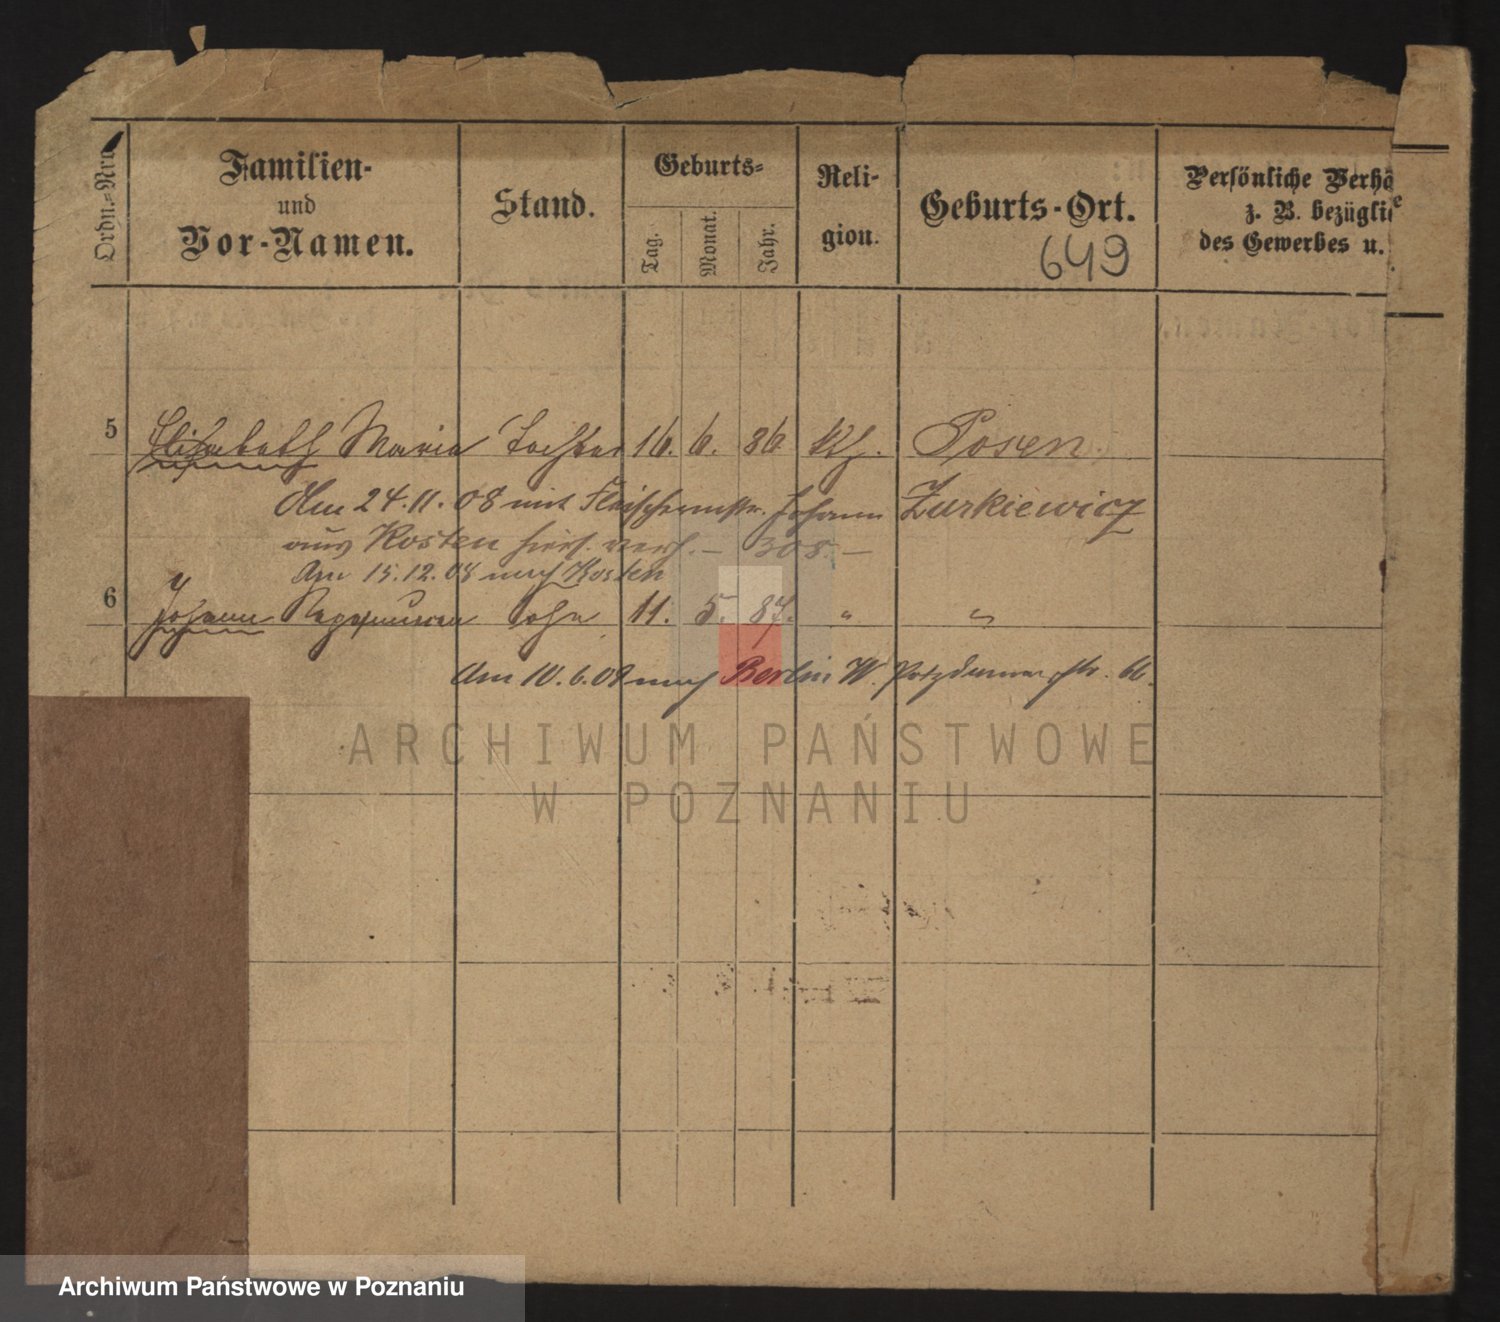 Ordn.-Nro
Familien-
und
Vor-Namen.
Stand.
Geburts-
Tag.
Monat.
Jahr.
Reli-
gion.
Geburts-Ort.
649
Persönliche Verhä
z. B. bezüglic
des Gewerbes u.
5 Elisabeth Maria Tochter 16. 6. 86 Kh. Posen.
Am 24.11.08 mit Fleischermstr. Johann Zurkiewicz
aus Kosten hier verh. – 305. –
Am 15.12.08 nach Kosten
6 Johann Sohn 11. 5. 87. " "
Am 10.6.09 nach Berlin W. Potsdamerstr. 66.
ARCHIWUM PAŃSTWOWE
W POZNANIU
Archiwum Państwowe w Poznaniu